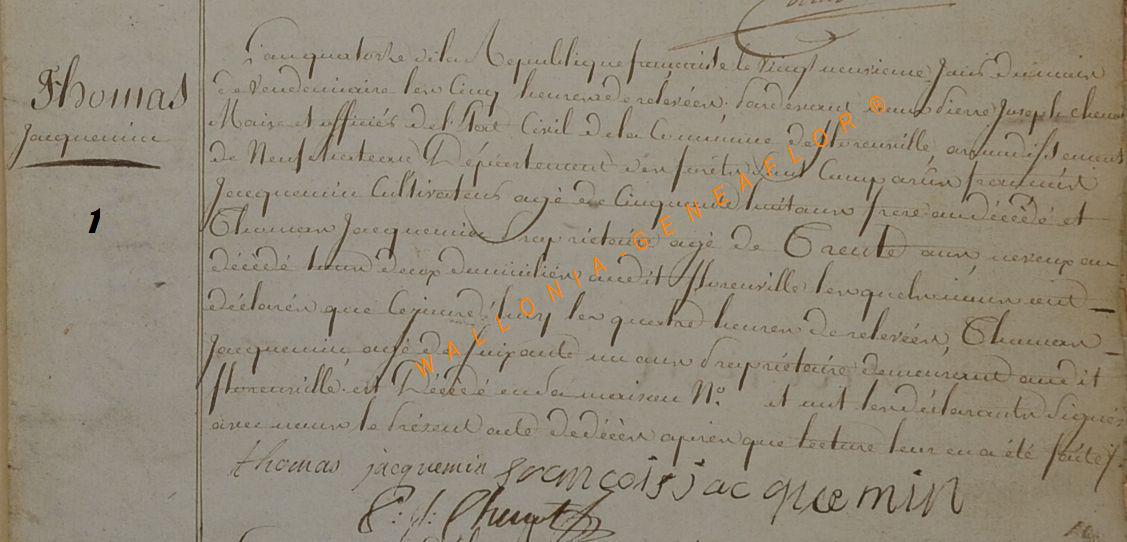 Thomas
Jacquemin
1
L'an quatorze de la République française le vingt neuvieme jour du mois
de Vendemiaire les Cinq heures de relevées. Pardevant nous Pierre Joseph Chenot
Maire et officiés de l'Etat Civil de la Commune de florenville arrondissement
de Neufchateau Département des forêts sont Comparus françois
Jacquemin Cultivateur agé de Cinquante huit ans frere au décédé et
Thomas Jacquemin Propriétaire agé de Trente ans, neveux au
décédé tous deux domiciliés audit florenville lesquels nous ont
déclarés que Cejourd'huy les quatre heures de relevées, Thomas
Jacquemin agé de soixante un ans Propriétaire demeurant audit
florenville est Décédé en sa maison N.º et ont les déclarants signés
avec nous le Présent acte de décès après que lecture leur en a été faite.
thomas jacquemin françois jacquemin
P: J: Chenot
WALLONIA-GENEAFLOR ®